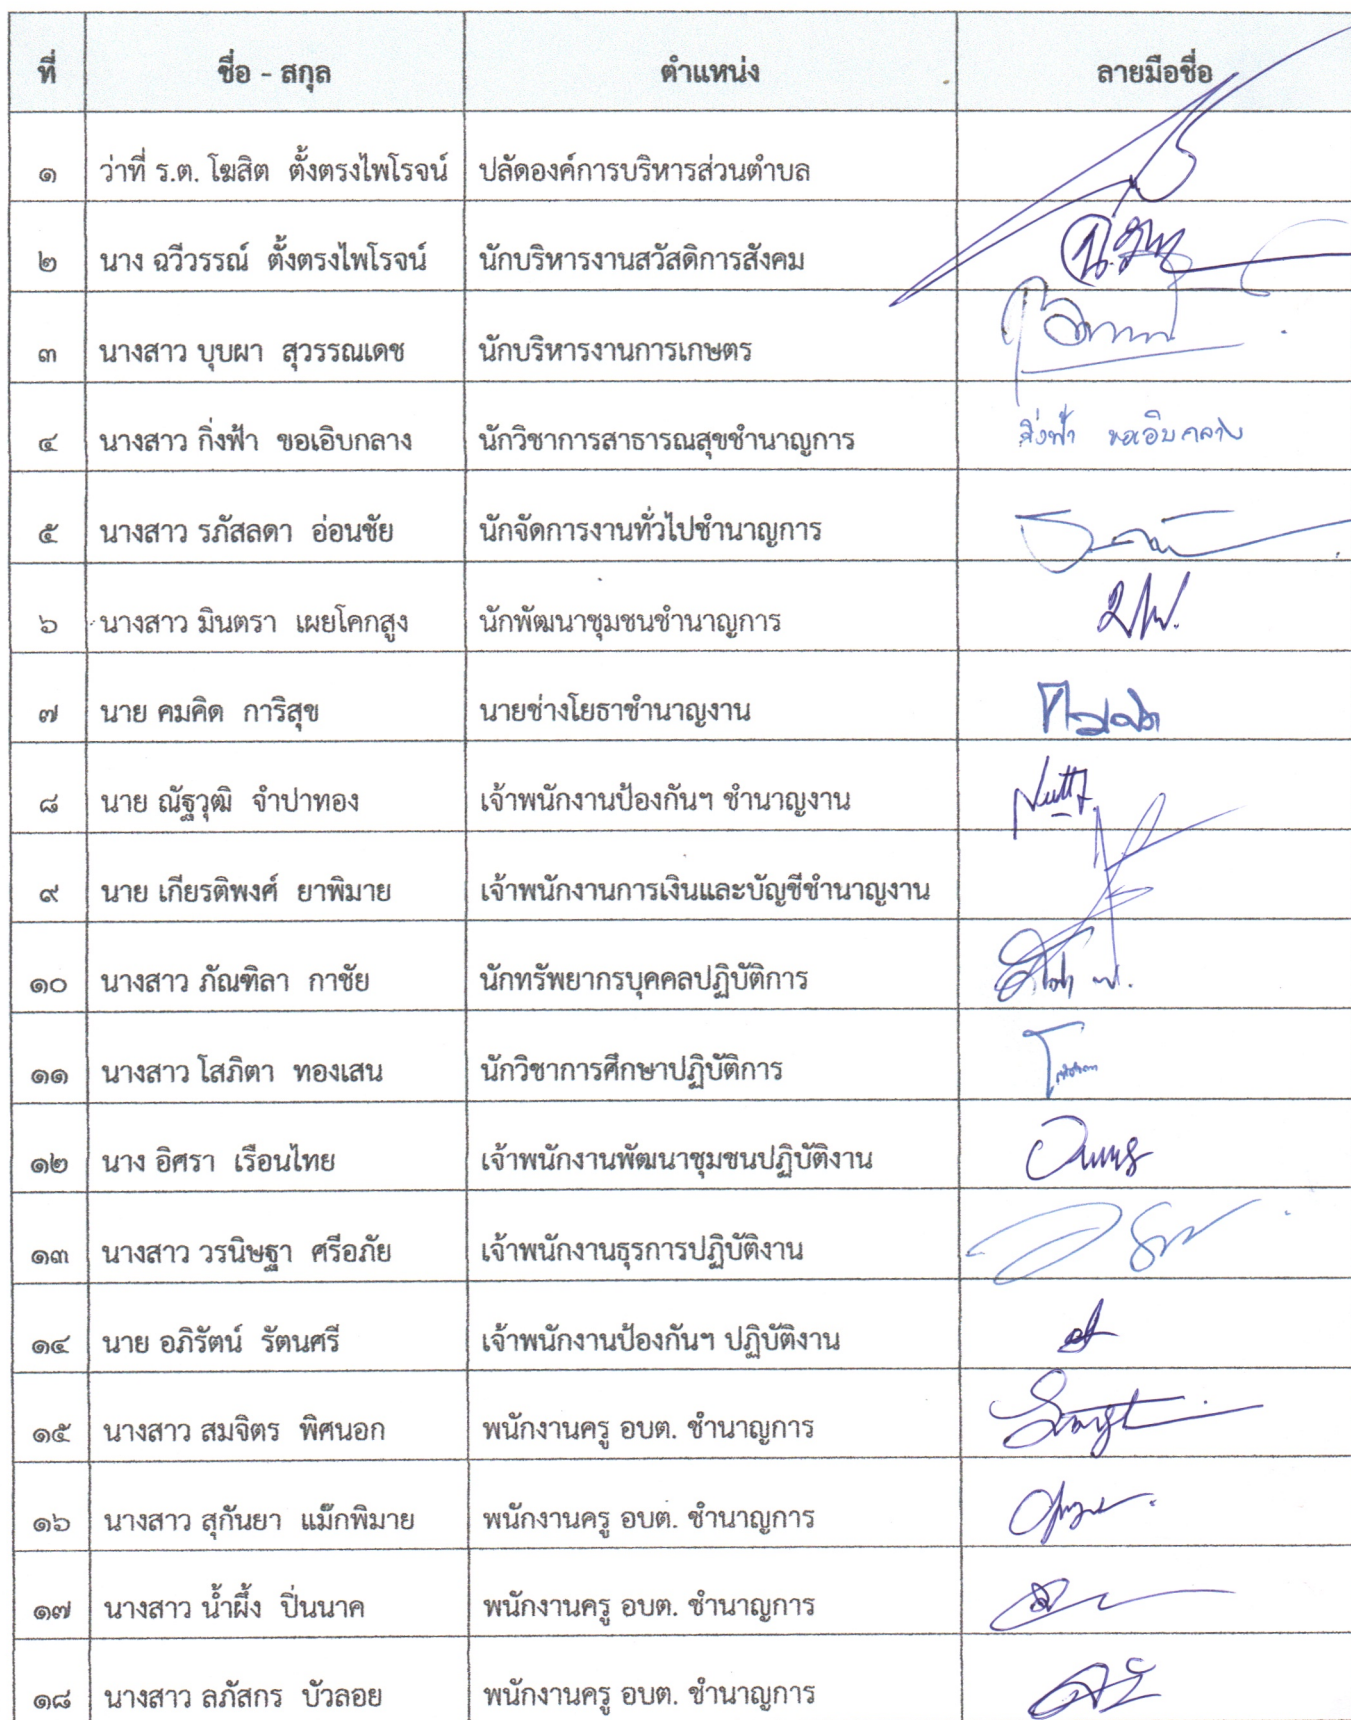 ที่ ชื่อ - สกุล ตำแหน่ง ลายมือชื่อ
๑ ว่าที่ ร.ต. โฆสิต ตั้งตรงไพโรจน์ ปลัดองค์การบริหารส่วนตำบล
๒ นาง ฉวีวรรณ์ ตั้งตรงไพโรจน์ นักบริหารงานสวัสดิการสังคม
๓ นางสาว บุบผา สุวรรณเดช นักบริหารงานการเกษตร
๔ นางสาว กิ่งฟ้า ขอเอิบกลาง นักวิชาการสาธารณสุขชำนาญการ กิ่งฟ้า ขอเอิบกลาง
๕ นางสาว รภัสลดา อ่อนชัย นักจัดการงานทั่วไปชำนาญการ
๖ นางสาว มินตรา เผยโคกสูง นักพัฒนาชุมชนชำนาญการ
๗ นาย คมคิด การิสุข นายช่างโยธาชำนาญงาน
๘ นาย ณัฐวุฒิ จำปาทอง เจ้าพนักงานป้องกันฯ ชำนาญงาน
๙ นาย เกียรติพงศ์ ยาพิมาย เจ้าพนักงานการเงินและบัญชีชำนาญงาน
๑๐ นางสาว ภัณฑิลา กาชัย นักทรัพยากรบุคคลปฏิบัติการ
๑๑ นางสาว โสภิตา ทองเสน นักวิชาการศึกษาปฏิบัติการ
๑๒ นาง อิศรา เรือนไทย เจ้าพนักงานพัฒนาชุมชนปฏิบัติงาน
๑๓ นางสาว วรนิษฐา ศรีอภัย เจ้าพนักงานธุรการปฏิบัติงาน
๑๔ นาย อภิรัตน์ รัตนศรี เจ้าพนักงานป้องกันฯ ปฏิบัติงาน
๑๕ นางสาว สมจิตร พิศนอก พนักงานครู อบต. ชำนาญการ
๑๖ นางสาว สุกันยา แม๊กพิมาย พนักงานครู อบต. ชำนาญการ
๑๗ นางสาว น้ำผึ้ง ปิ่นนาค พนักงานครู อบต. ชำนาญการ
๑๘ นางสาว ลภัสกร บัวลอย พนักงานครู อบต. ชำนาญการ